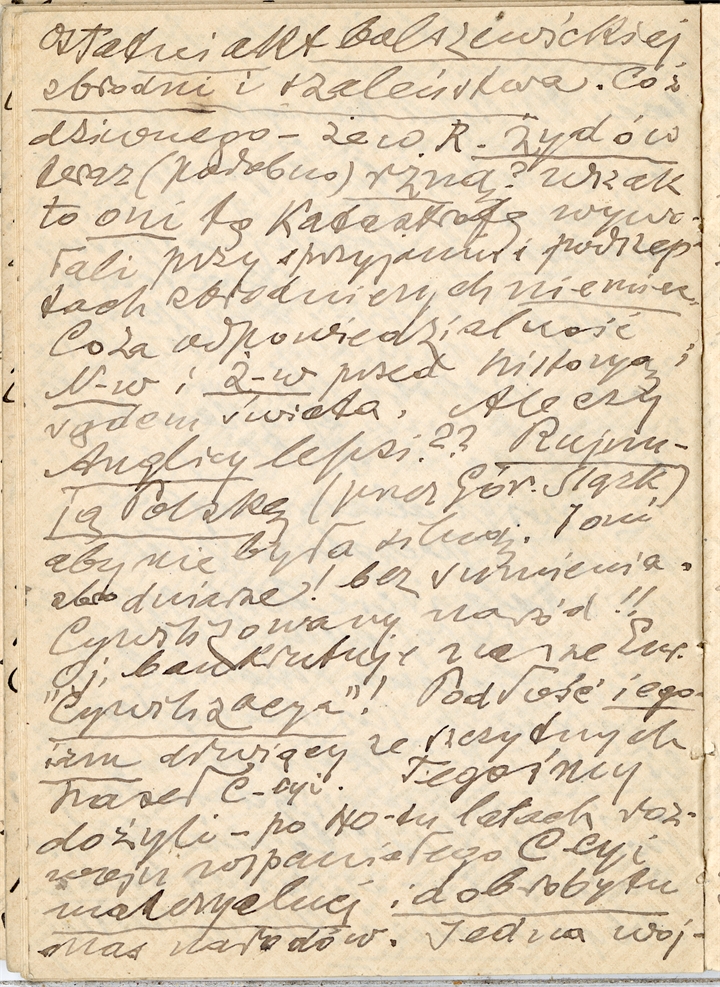 ostatni akt bolszewickiej
zbrodni i szaleństwa. Cóż
dziwnego – że w R. Żydów
teraz (podobno) rżną? wszak
to oni tę Katastrofę wywo-
łali przy sprzyjaniu i podszep-
tach zbrodniczych niemiec.
Coża odpowiedzialność
N-w i Ż-w przed historyą i
sądem świata. Ale czy
Anglicy lepsi?? Rujnu-
ją Polskę (przez Gór. Śląsk)
aby nie była silną. I oni
zbrodniarze! bez sumienia.
Cywilizowany naród!!
Oj, bankrutuje nasze Eur.
"Cywilizacya"! Podłość i ego-
izm drwiący ze szczytnych
haseł C-cyi. Tegośmy
dożyli – po 40-tu latach roz-
woju wspaniałego C-cyi
materyalnej i dobrobytu
mas narodów. Jedna woj-